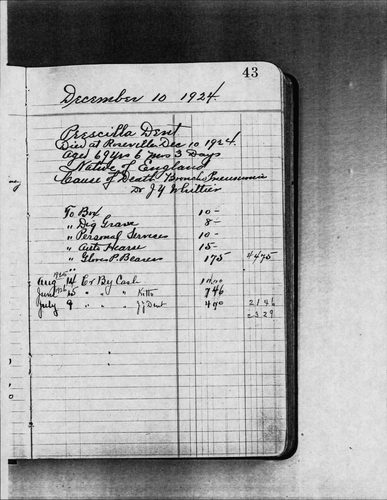 43
December 10 1924
Prescilla Dent
Died at Roseville Dec 10 1924
Age 69 yrs 6 mos 3 Days
Native of England
Cause of Death Broncho Pneumonia
Dr J Y Whittier
To Box 10 -
" Dig Grave 8 -
" Personal Services 10 -
" Auto Hearse 15 -
" Gloves P. Bearers 1 75 44 75
1925
Aug 14 Cr By Cash
June 15 " " " Kitto 7 46
July 9 " " " J J Dent 4 00 21 46
23 29